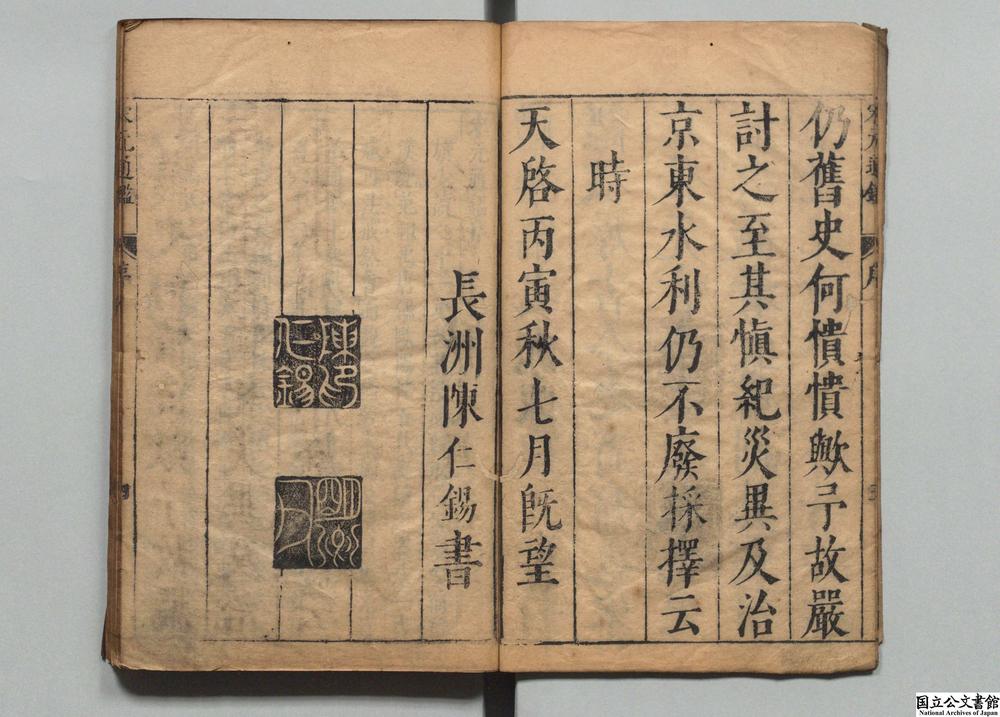 仍舊史何憒憒歟予故嚴
討之至其愼紀災異及治
京東水利仍不廢採擇云
時
天啓丙寅秋七月旣望
長洲陳仁錫書
陳印仁錫
宋元通鑑
序
四
宋元通鑑
序
三
国立公文書館
National Archives of Japan